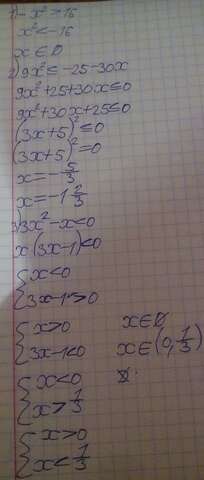 1) -x² > 16
x² < -16
x ∈ Ø
2) 9x² ≤ -25-30x
9x²+25+30x ≤ 0
9x²+30x+25 ≤ 0
(3x+5)² ≤ 0
(3x+5)² = 0
x = -5/3
x = -1 2/3
3) 3x²-x<0
x(3x-1)<0
{ x<0
3x-1>0
{ x>0 x ∈ Ø
3x-1<0 x ∈ (0, 1/3)
{ x<0
x > 1/3
{ x>0
x < 1/3